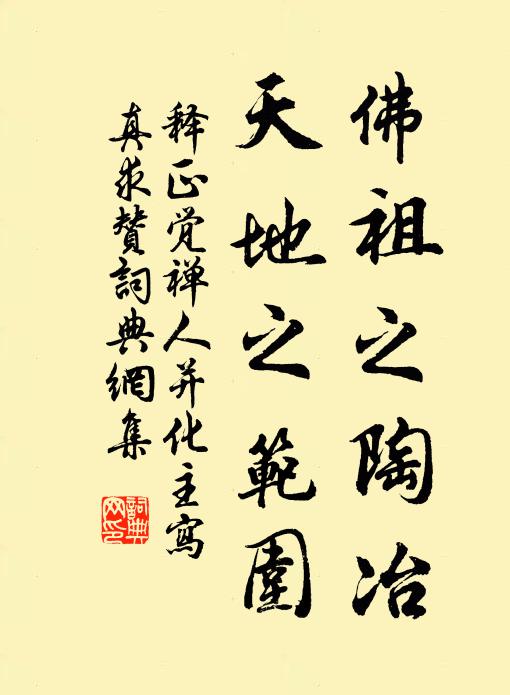 佛祖之陶冶
天地之範圍
释正觉禅人并化主寫
真求赞詞典網集
詞典網印